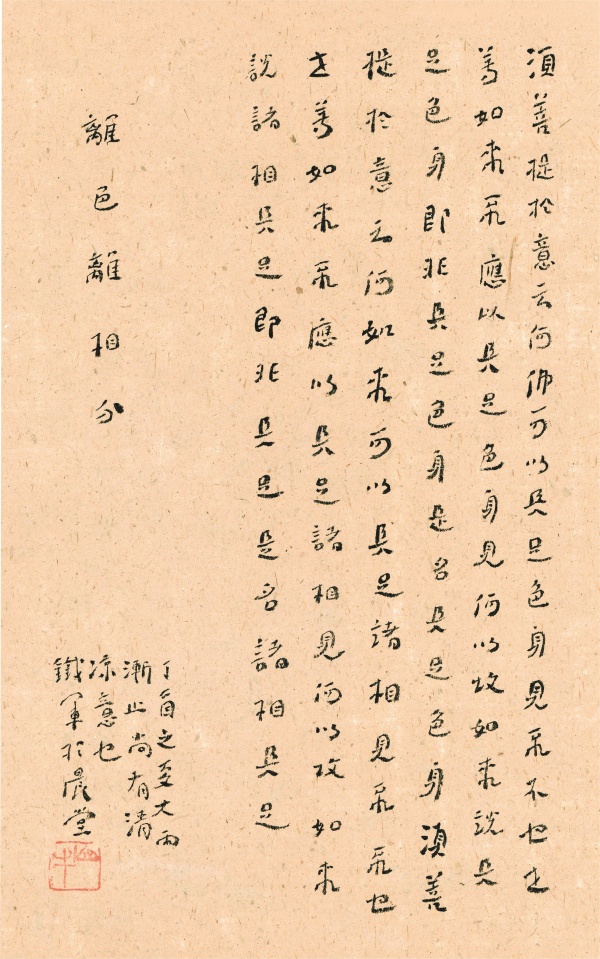 須菩提於意云何佛可以具足色身見不不也世
尊如來不應以具足色身見何以故如來說具
足色身即非具足色身是名具足色身須菩
提於意云何如來可以具足諸相見不不也
世尊如來不應以具足諸相見何以故如來
說諸相具足即非具足是名諸相具足
離色離相分
丁酉之夏大雨
漸止尚有清
涼意也
鐵軍於晨堂